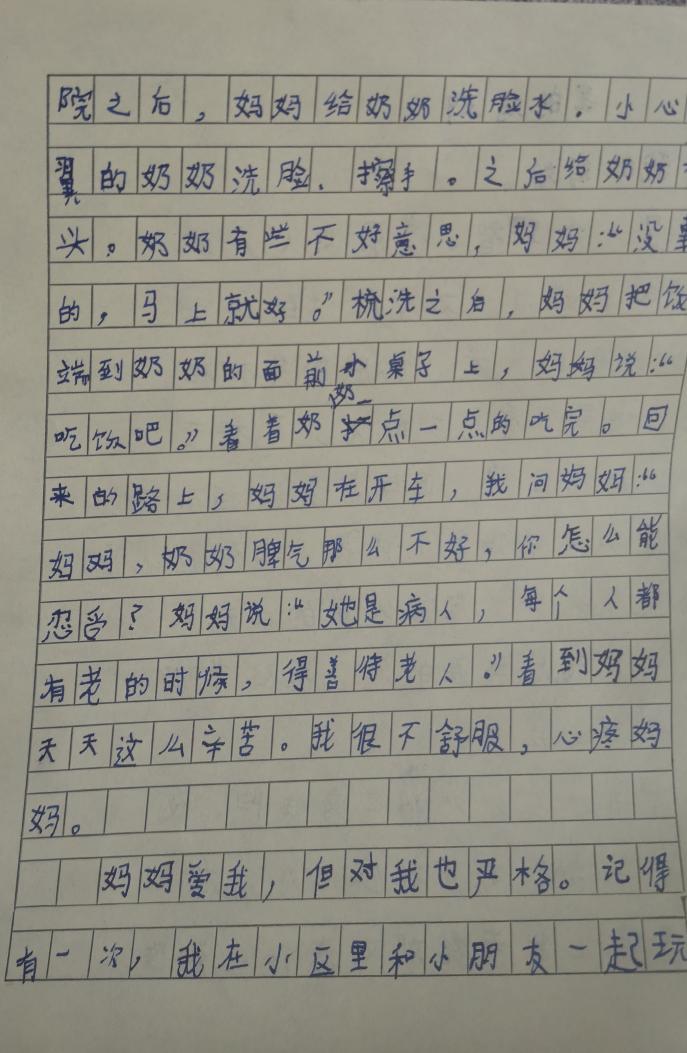 院之后，妈妈给奶奶洗脸水．小心
翼的奶奶洗脸、擦手。之后给奶奶
头。奶奶有些不好意思，妈妈：“没
的，马上就好。”梳洗之后，妈妈把饭
端到奶奶的面前小桌子上，妈妈说：“
吃饭吧。”看着奶奶一点一点的吃完。回
来的路上，妈妈在开车，我问妈妈：“
妈妈，奶奶脾气那么不好，你怎么能
忍受？妈妈说：“她是病人，每个人都
有老的时候，得善待老人。”看到妈妈
天天这么辛苦。我很不舒服，心疼妈
妈。
妈妈爱我，但对我也严格。记得
有一次，我在小区里和小朋友一起玩